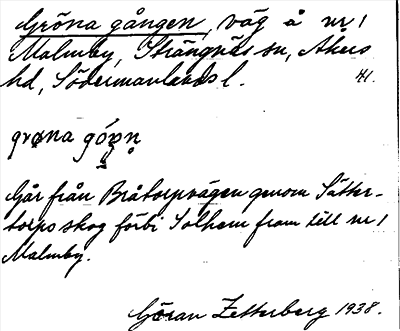 Gröna gången, väg å nr 1
Malmby, Strängnäs sn, Åkers
hd, Södermanlands l. 41.
grøna góŋn̥
Går från Bråtorpvägen genom Sätter-
torps skog förbi Solhem fram till nr 1
Malmby.
Göran Zetterberg 1938.